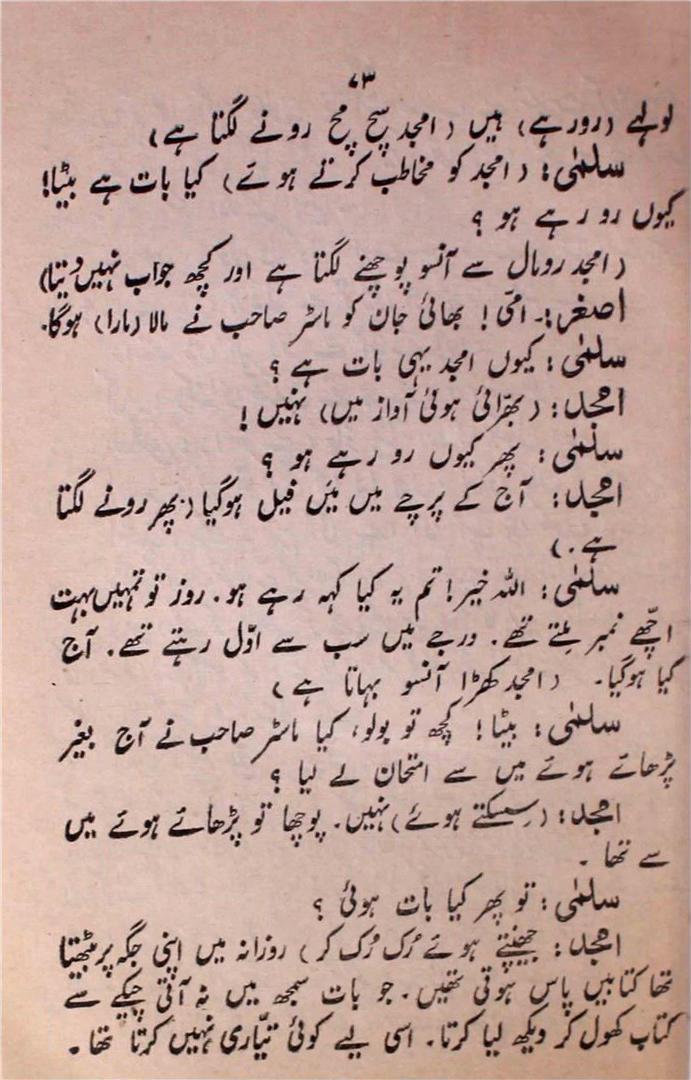 ۷۳
لولہے (رورہے) ہیں (امجد سچ مچ رونے لگتا ہے)
سلمٰی: (امجد کو مخاطب کرتے ہوئے) کیا بات ہے بیٹا!
کیوں رو رہے ہو ؟
(امجد رومال سے آنسو پوچھنے لگتا ہے اور کچھ جواب نہیں دیتا)
اصغر:۔ امّی! بھائی جان کو ماسٹر صاحب نے مالا (مارا) ہوگا۔
سلمٰی: کیوں امجد یہی بات ہے ؟
امجد: (بھرّائی ہوئی آواز میں) نہیں!
سلمٰی: پھر کیوں رو رہے ہو ؟
امجد: آج کے پرچے میں میں فیل ہوگیا (پھر رونے لگتا
ہے۔)
سلمٰی: اللہ خیر! تم یہ کیا کہہ رہے ہو۔ روز تو تمہیں بہت
اچھّے نمبر ملتے تھے۔ درجے میں سب سے اوّل رہتے تھے۔ آج
کیا ہوگیا۔ (امجد کھڑا آنسو بہاتا ہے)
سلمٰی: بیٹا! کچھ تو بولو، کیا ماسٹر صاحب نے آج بغیر
پڑھائے ہوئے میں سے امتحان لے لیا ؟
امجد: (سسکتے ہوئے) نہیں۔ پوچھا تو پڑھائے ہوئے میں
سے تھا۔
سلمٰی: تو پھر کیا بات ہوئی ؟
امجد: جھینپتے ہوئے رُک رُک کر) روزانہ میں اپنی جگہ پر بیٹھتا
تھا کتابیں پاس ہوتی تھیں۔ جو بات سمجھ میں نہ آتی چپکے سے
کتاب کھول کر دیکھ لیا کرتا۔ اسی لیے کوئی تیّاری نہیں کرتا تھا۔